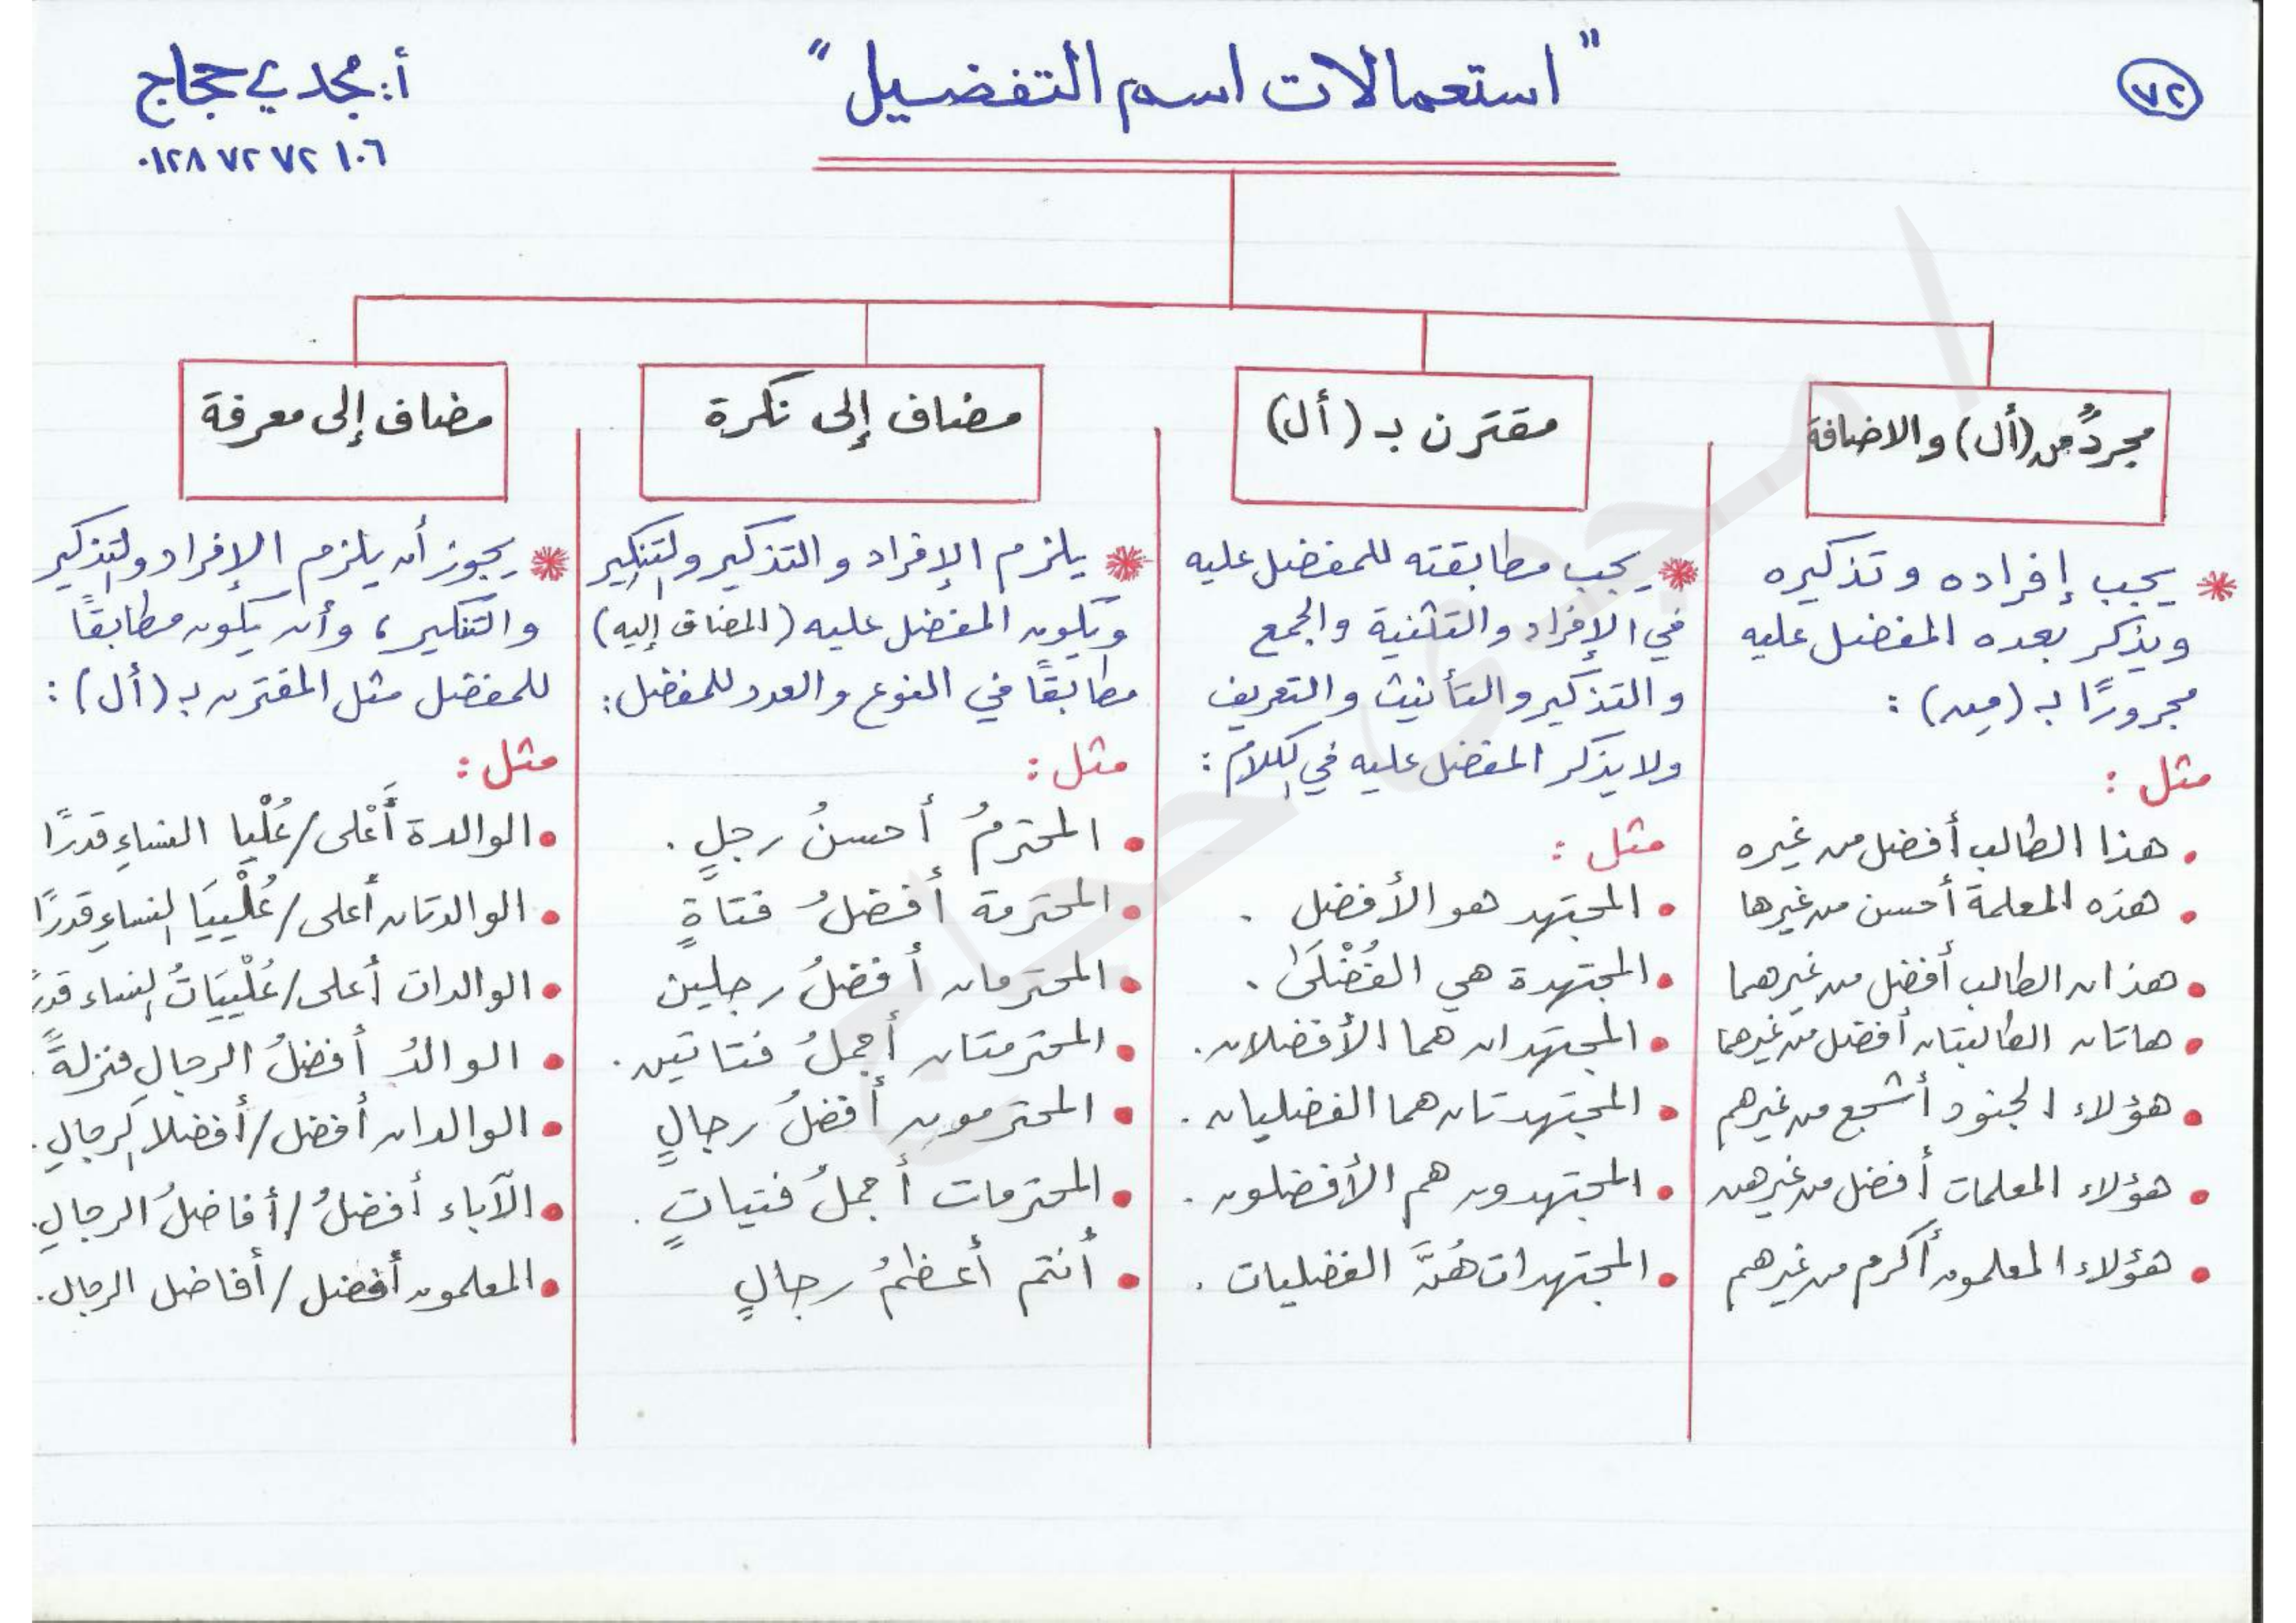 ٧٢
" استعمالات اسم التفضيل "
أ: مجدي حجاج
٠١٢٨ ٧٢ ٧٢ ١٠٦
مجردٌ من (أل) والاضافة
* يجب إفراده وتذكيره
ويذكر بعده المفضل عليه
مجرورًا بـ (مِن) :
مثل :
• هذا الطالب أفضل من غيره
• هذه المعلمة أحسن من غيرها
• هذان الطالب أفضل من غيرهما
• هاتان الطالبتان أفضل من غيرهما
• هؤلاء الجنود أشجع من غيرهم
• هؤلاء المعلمات أفضل من غيرهن
• هؤلاء المعلمون أكرم من غيرهم
مقترن بـ (أل)
* يجب مطابقته للمفضل عليه
في الإفراد والتثنية والجمع
والتذكير والتأنيث والتعريف
ولا يذكر المفضل عليه في الكلام :
مثل :
• المجتهد هو الأفضل .
• المجتهدة هي الفُضْلَى .
• المجتهدان هما الأفضلان.
• المجتهدتان هما الفضليان .
• المجتهدون هم الأفضلون .
• المجتهدات هُنَّ الفضليات .
مضاف إلى نكرة
* يلزم الإفراد والتذكير والتنكير
ويكون المفضل عليه (المضاف إليه)
مطابقًا في النوع والعدد للمفضل:
مثل :
• المحترمُ أحسنُ رجلٍ .
• المحترمة أفضلُ فتاةٍ
• المحترمان أفضلُ رجلين
• المحترمتان أجملُ فتاتين .
• المحترمون أفضلُ رجالٍ
• المحترمات أجملُ فتياتٍ .
• أنتم أعظمُ رجالٍ
مضاف إلى معرفة
* يجوز أن يلزم الإفراد والتذكير
والتنكير ، وأن يكون مطابقًا
للمفضل مثل المقترن بـ (أل) :
مثل :
• الوالدة أَعْلى/عُلْيا النساءِ قدرًا
• الوالدتان أعلى/عُلْييَا النساءِ قدرًا
• الوالدات أعلى/عُلْييَاتُ النساء قدرً
• الوالدُ أفضلُ الرجالِ منزلةً .
• الوالدان أفضل/أفضلا الرجالِ .
• الآباء أفضلُ/أفاضلُ الرجالِ.
• المعلمون أفضل/أفاضل الرجال.
أ / مجدى حجاج